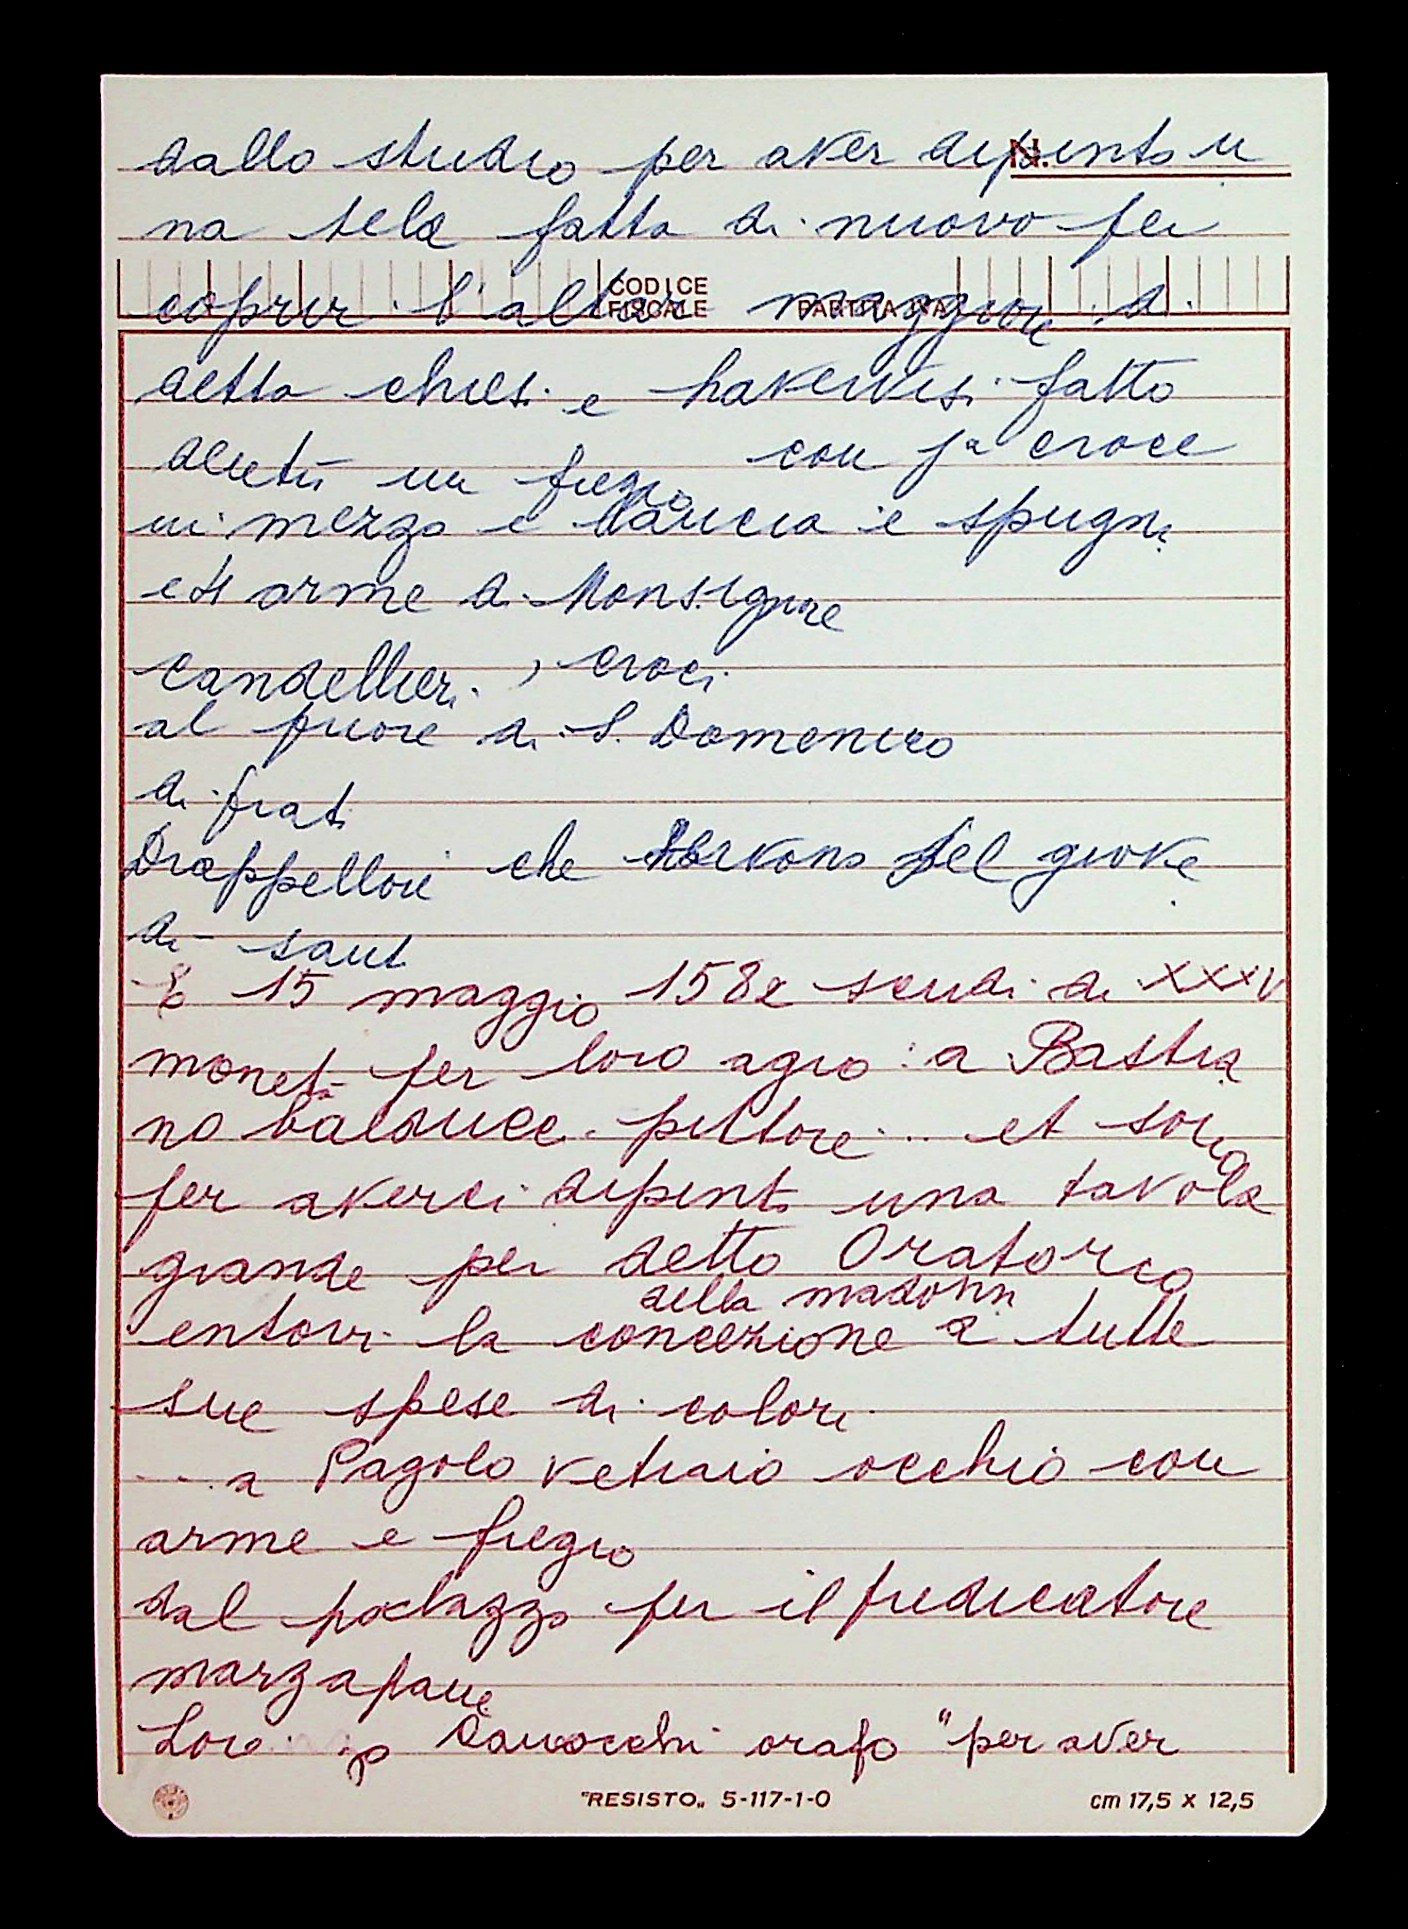 dallo studio per aver dipinto u
N.
na tela fatta di nuovo per
coprir l'altar maggiore di
CODICE FISCALE PARTITA IVA
detta chies. e havervisi fatto
un fregio con la croce
in mezzo e lancia e spugn.
et arme di Monsignore
candellieri, croci
al priore di S. Domenico
di frati
Drappelloni che servono pel giove
di sant
E 15 maggio 1582 scudi di XXXV
moneta per loro agio: a Bastia
no balducci pittore ... et sono
per averci dipinto una tavola
grande per detto Oratorio
della madonn
entovi la concezione a tutte
sue spese di colori
... a Pagolo vetraio occhio con
arme e fregio
dal palazzo per il predicatore
marzapane
orafo "per aver
"RESISTO„ 5-117-1-0 cm 17,5 x 12,5